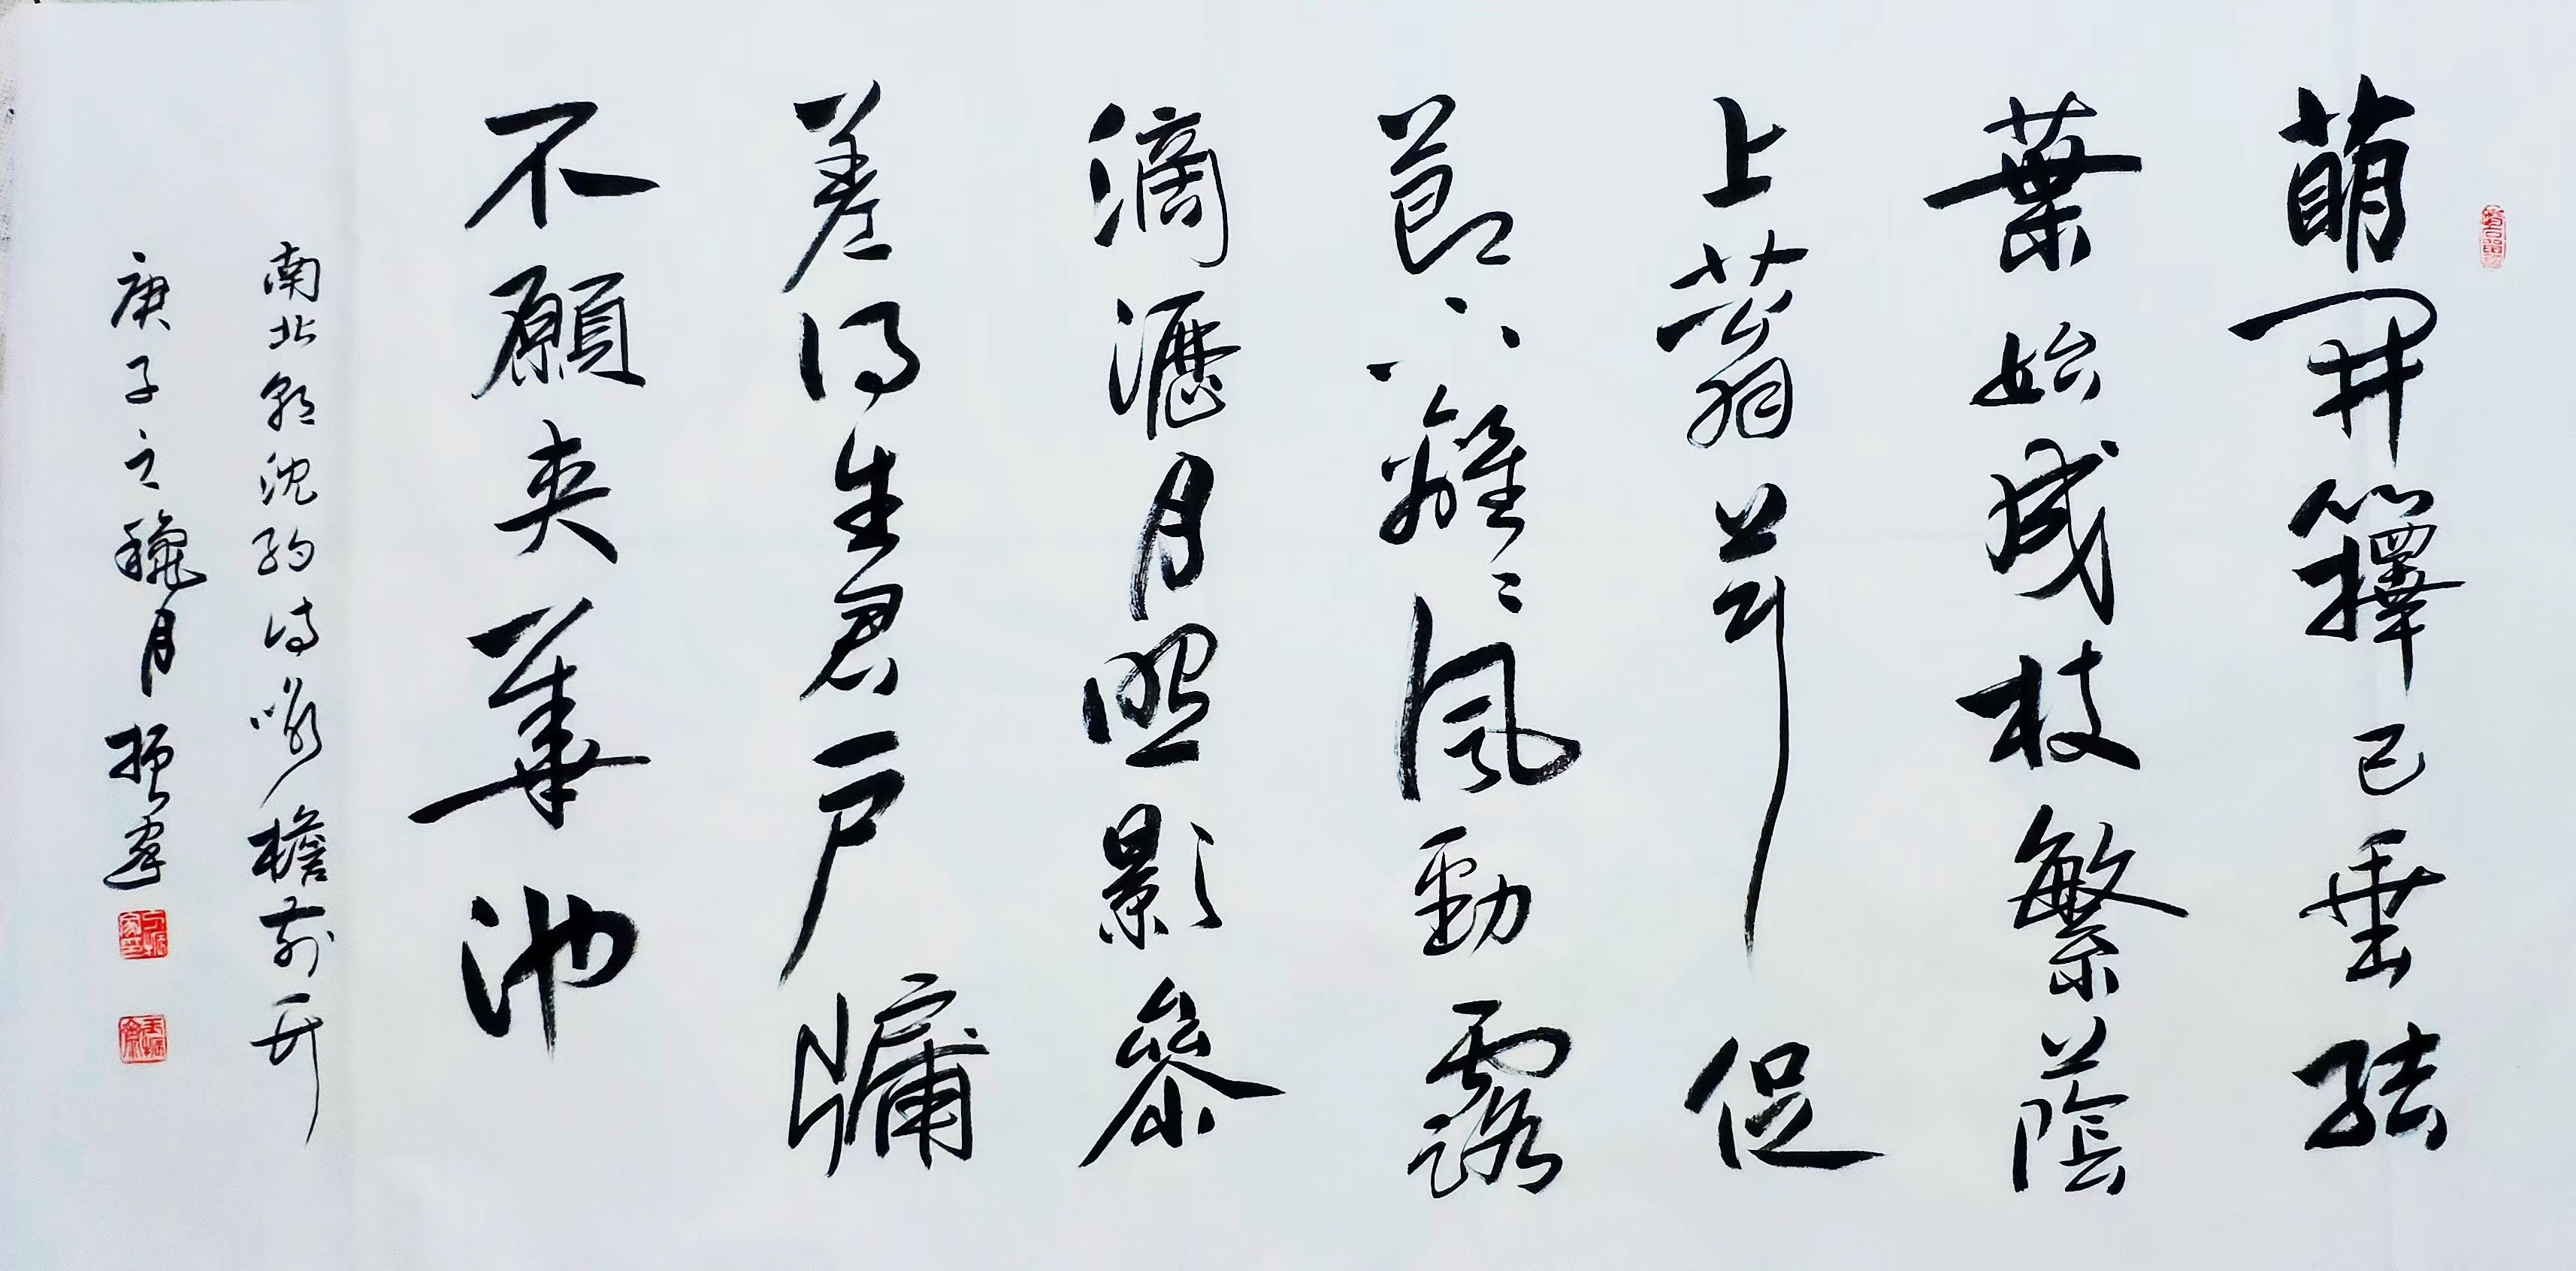 萌開籜已垂結
葉始成枝繁蔭
上蓊茸促
節下離〻風動露
滴瀝月照影參
差得生君戶牖
不願夾華池
南北朝沈約詩咏檐前竹
庚子之穐月振家